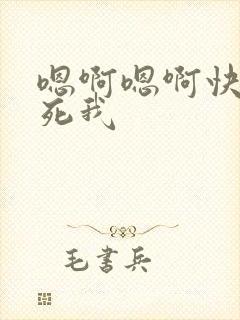 嗯啊嗯啊快
死我
毛书兵